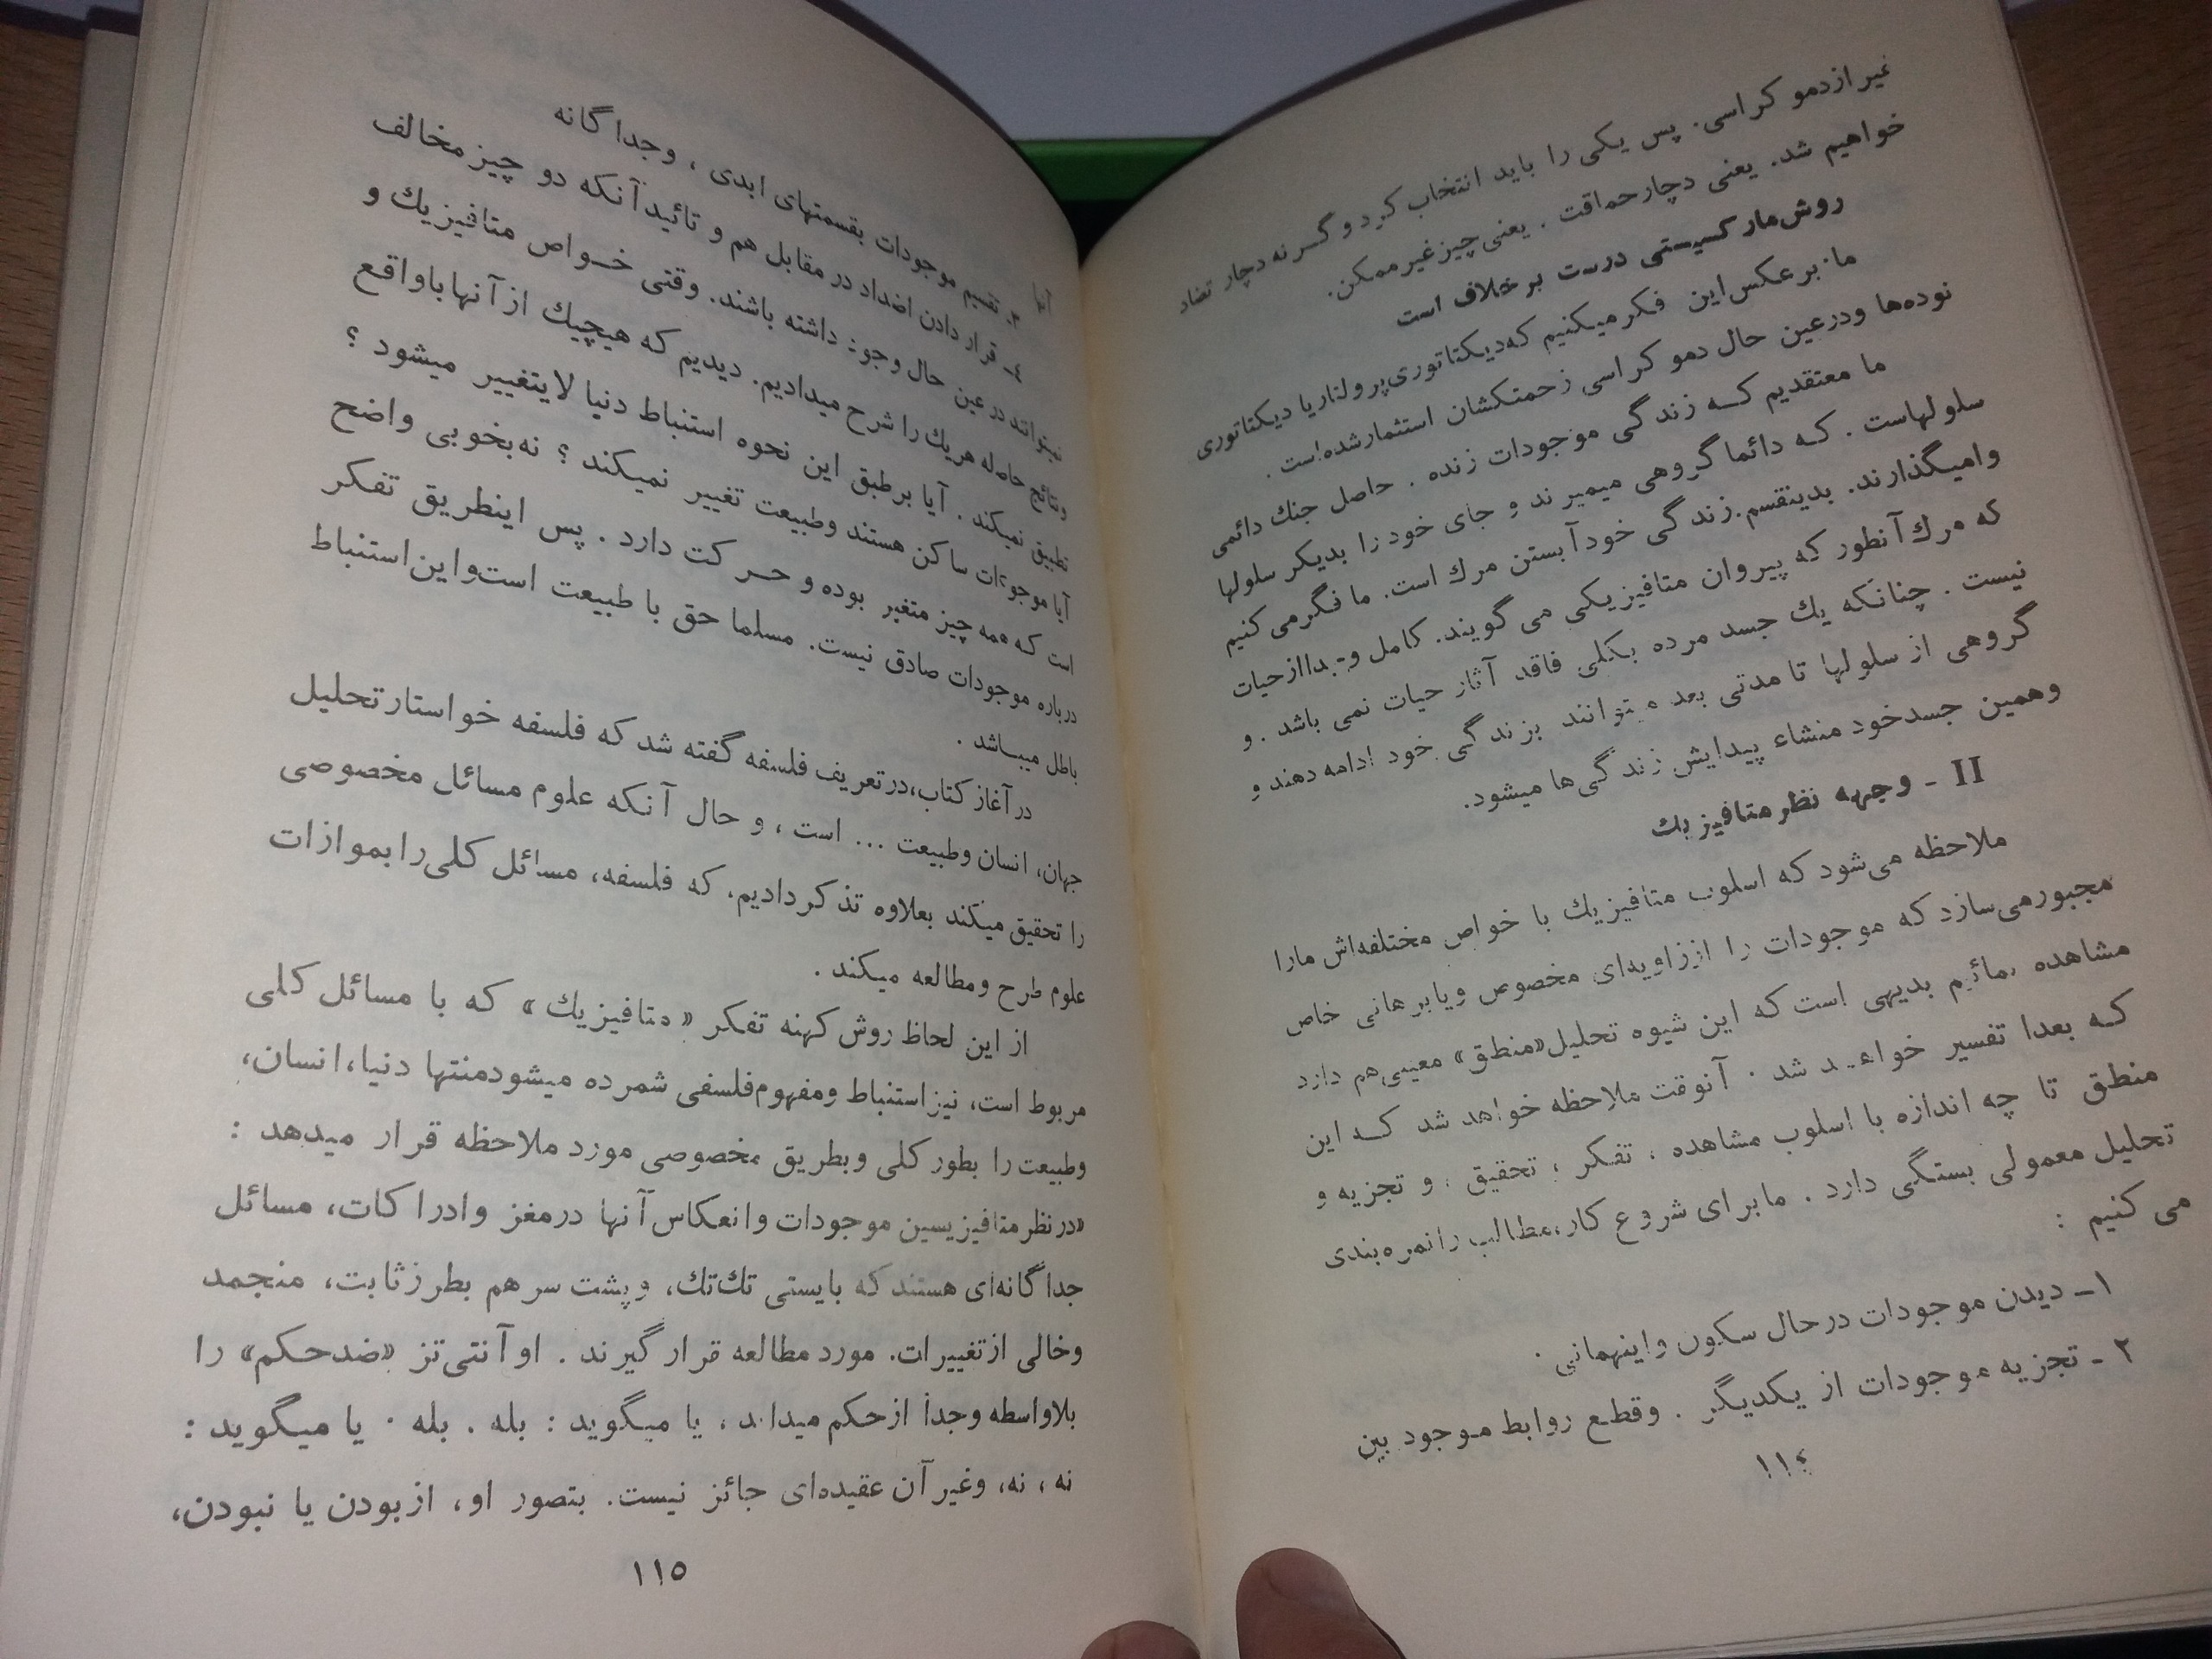 غیر ازدمو کراسی. پس یکی را باید انتخاب کرد و گرنه دچار تضاد
خواهیم شد. یعنی دچارحماقت . یعنی چیز غیر ممکن.
روش‌مارکسیستی درست بر خلاف است
ما برعکس‌این فکر میکنیم که‌دیکتاتوری‌پرولتاریا دیکتاتوری
توده‌ها ودرعین حال دمو کراسی زحمتکشان استثمارشده‌است .
ما معتقدیم که زندگی موجودات زنده . حاصل جنك دائمی
سلولهاست . که دائما گروهی میمیرند و جای خود را بدیکر سلولها
وامیگذارند. بدینقسم زندگی خودآبستن مرك است. ما فکرمی کنیم
که مرك آنطور که پیروان متافیزیکی می گویند. کامل وجدااز حیات
نیست . چنانکه یك جسد مرده بکلی فاقد آثار حیات نمی باشد . و
گروهی از سلولها تا مدتی بعد میتوانند بزندگی خود ادامه دهند و
وهمین جسدخود منشاء پیدایش زندگی‌ها میشود.
II - وجهه نظر متافیزیك
ملاحظه می‌شود که اسلوب متافیزیك با خواص مختلفه‌اش مارا
مجبورمی‌سازد که موجودات را اززاویه‌ای مخصوص ویابرهانی خاص
مشاهده نمائیم بدیهی است که این شیوه تحلیل«منطق» معینی‌هم دارد
که بعدا تفسیر خواهد شد . آنوقت ملاحظه خواهد شد که این
منطق تا چه اندازه با اسلوب مشاهده ، تفکر ، تحقیق ، و تجزیه و
تحلیل معمولی بستگی دارد . مابرای شروع کار،مطالب رانمره‌بندی
می کنیم :
۱ـ دیدن موجودات درحال سکون واینهمانی .
۲ ـ تجزیه موجودات از یکدیگر . وقطع روابط موجود بین
۱۱٤
آنها
۳ـ تقسیم موجودات بقسمتهای ابدی ، وجداگانه
٤ـ قرار دادن اضداد در مقابل هم و تائید آنکه دو چیز مخالف
نمیتوانند در عین حال وجود داشته باشند. وقتی خواص متافیزیك و
ونتائج حاصله هریك را شرح میدادیم. دیدیم که هیچیك از آنها باواقع
تطبیق نمیکند . آیا برطبق این نحوه استنباط دنیا لایتغییر میشود ؟
آیا موجودات ساکن هستند وطبیعت تغییر نمیکند ؟ نه‌بخوبی واضح
است که همه چیز متغیر بوده و حرکت دارد . پس اینطریق تفکر
درباره موجودات صادق نیست. مسلما حق با طبیعت است‌واین‌استنباط
باطل میباشد .
در آغاز کتاب،درتعریف فلسفه گفته شد که فلسفه خواستار تحلیل
جهان، انسان وطبیعت ... است ، و حال آنکه علوم مسائل مخصوصی
را تحقیق میکند بعلاوه تذکردادیم. که فلسفه، مسائل کلی‌رابموازات
علوم طرح ومطالعه میکند .
از این لحاظ روش کهنه تفکر «متافیزیك» که با مسائل کلی
مربوط است، نیزاستنباط ومفهوم‌فلسفی شمرده میشودمنتها دنیا،انسان،
وطبیعت را بطورکلی وبطریق مخصوصی مورد ملاحظه قرار میدهد :
«درنظرمتافیزیسین موجودات وانعکاس‌آنها درمغز وادراکات، مسائل
جداگانه‌ای هستند که بایستی تك‌تك، وپشت سرهم بطرزثابت، منجمد
وخالی ازتغییرات. مورد مطالعه قرار گیرند . اوآنتی‌تز «ضدحکم» را
بلاواسطه وجدا ازحکم میداند ، یا میگوید : بله . بله . یا میگوید :
نه ، نه، وغیرآن عقیده‌ای جائز نیست. بتصور او، ازبودن یا نبودن،
۱۱٥